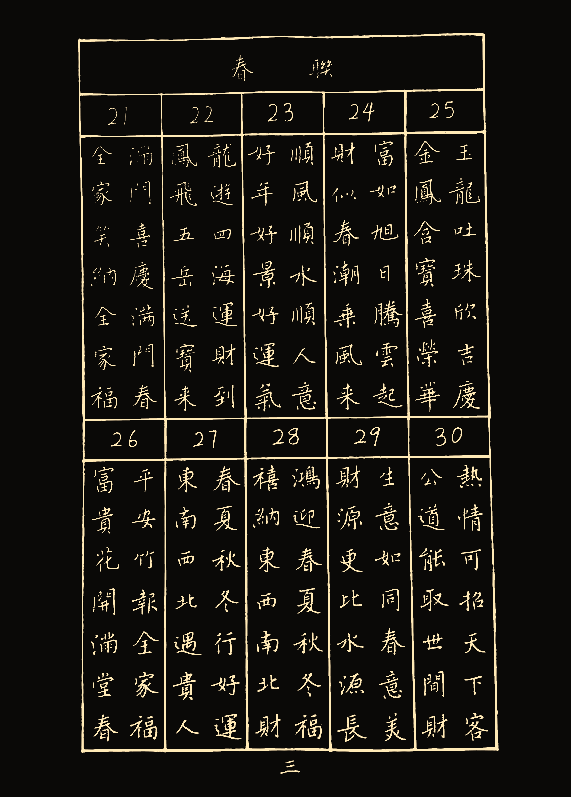 春聯
21 22 23 24 25
滿門喜慶滿門春
全家笑納全家福
龍遊四海運財到
鳳飛五岳送寶来
順風順水順人意
好年好景好運氣
富如旭日騰雲起
財似春潮乗風来
玉龍吐珠欣吉慶
金鳳含寶喜榮華
26 27 28 29 30
平安竹報全家福
富貴花開滿堂春
春夏秋冬行好運
東南西北遇貴人
鴻迎春夏秋冬福
禧納東西南北財
生意如同春意美
財源更比水源長
熱情可招天下客
公道能取世間財
三